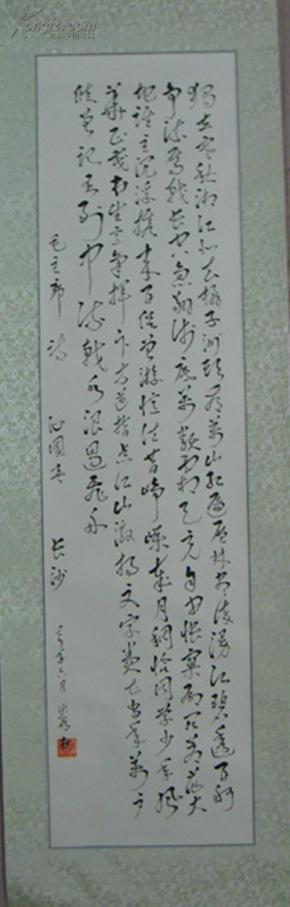 独立寒秋湘江北去橘子洲头看万山红遍层林尽染漫江碧透百舸
争流鹰击长空鱼翔浅底万类霜天竞自由怅寥廓问苍茫大
地谁主沉浮携来百侣曾游忆往昔峥嵘岁月稠恰同学少年风
华正茂书生意气挥斥方遒指点江山激扬文字粪土当年万户
侯曾记否到中流击水浪遏飞舟
毛主席 词 沁园春 长沙
年六月